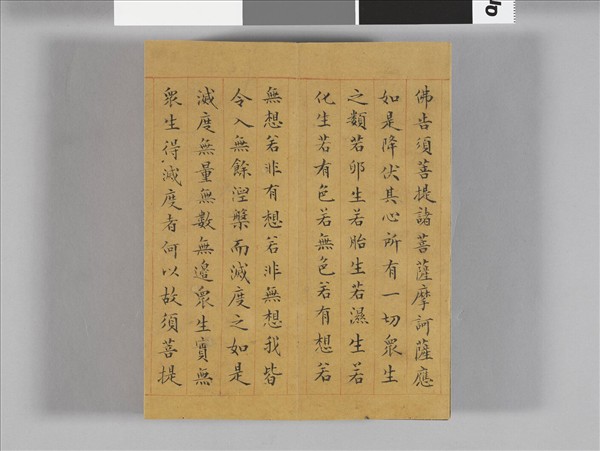 佛告須菩提諸菩薩摩訶薩應
如是降伏其心所有一切衆生
之類若卵生若胎生若濕生若
化生若有色若無色若有想若
無想若非有想若非無想我皆
令入無餘涅槃而滅度之如是
滅度無量無數無邊衆生實無
衆生得滅度者何以故須菩提